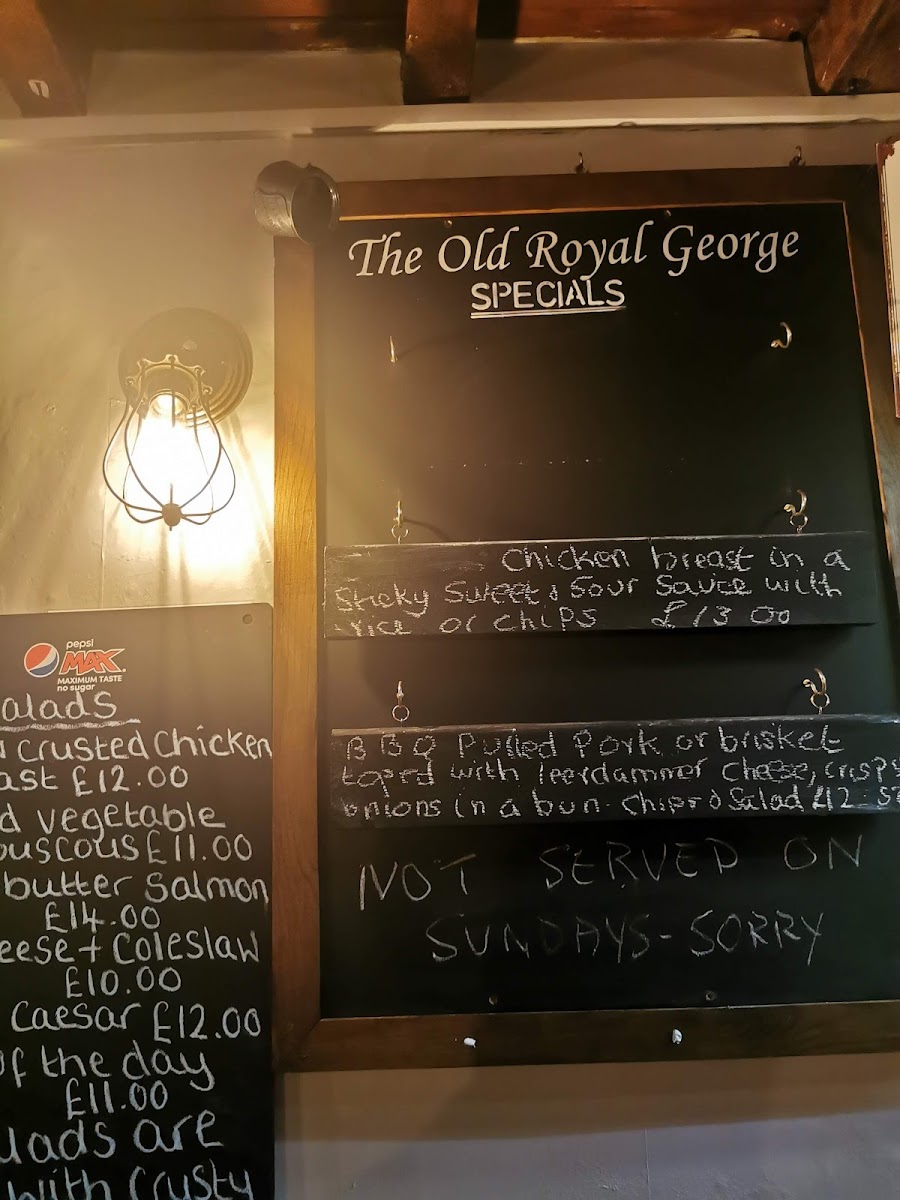 The Old Royal George
SPECIALS
Chicken breast in a
Sticky Sweet & Sour Sauce with
rice or chips £13 00
BBQ Pulled Pork or brisket
toped with leerdammer cheese, crispy
onions in a bun. Chips & Salad £12.50
NOT SERVED ON
SUNDAYS-SORRY
pepsi
MAX
MAXIMUM TASTE
no sugar
alads
Crusted Chicken
ast £12.00
d vegetable
ouscous £11.00
butter Salmon
£14.00
eese + Coleslaw
£10.00
Caesar £12.00
of the day
£11.00
lads are
with Crusty